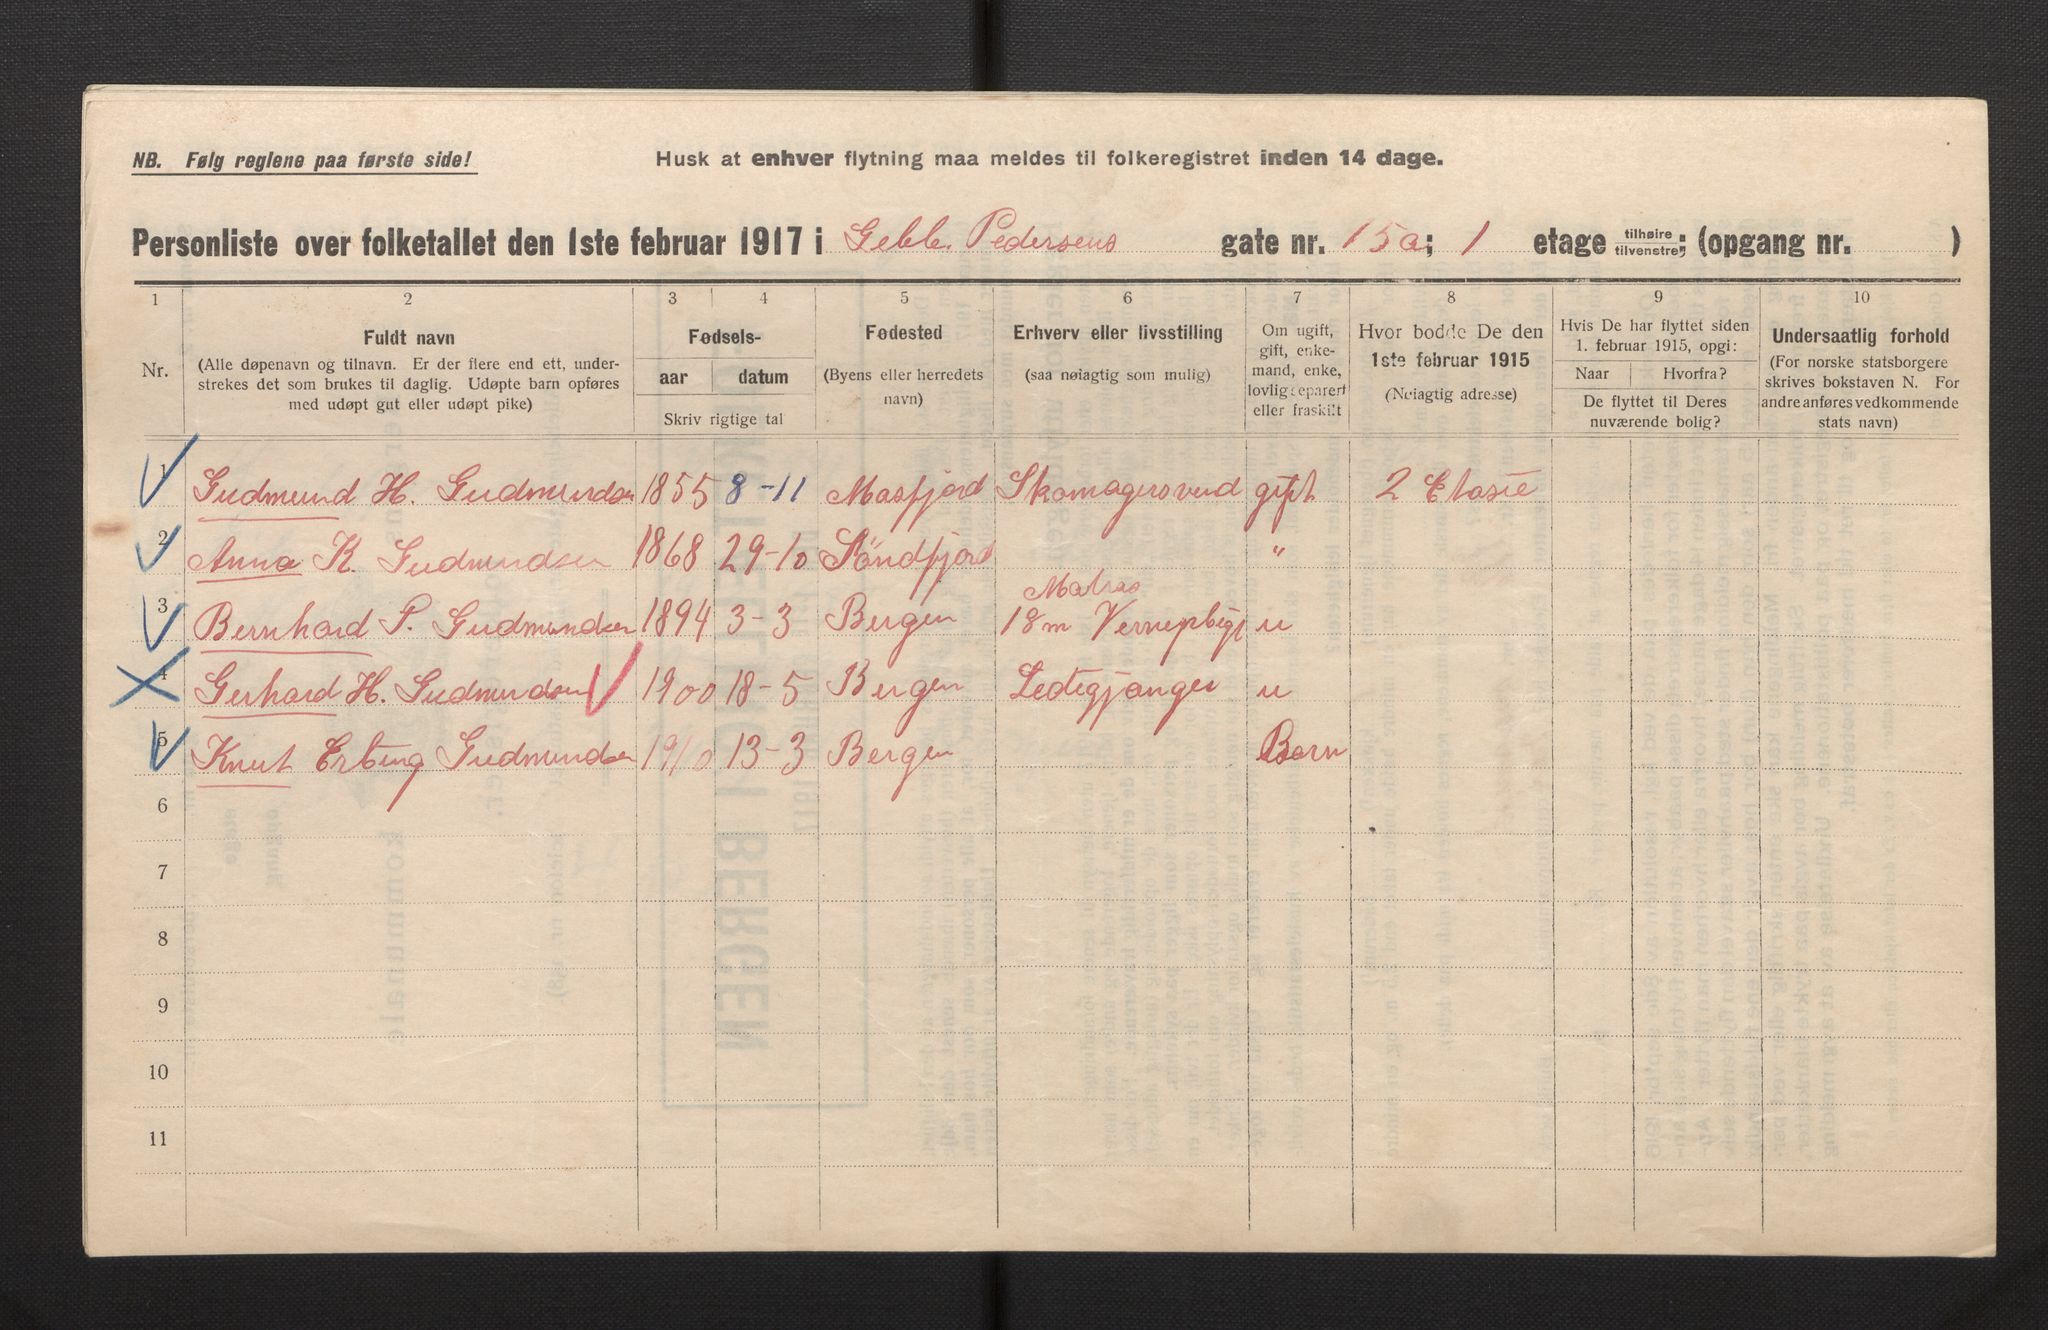 NB. Følg reglene paa første side!
Husk at enhver flytning maa meldes til folkeregistret inden 14 dage.
Personliste over folketallet den 1ste februar 1917 i Gebh. Pedersens gate nr. 15a; 1 etage tilhøire/tilvenstre; (opgang nr. )
1 2 3 4 5 6 7 8 9 10
Nr.
Fuldt navn
(Alle døpenavn og tilnavn. Er der flere end ett, under-
strekes det som brukes til daglig. Udøpte barn opføres
med udøpt gut eller udøpt pike)
Fødsels-
aar datum
Skriv rigtige tal
Fødested
(Byens eller herredets
navn)
Erhverv eller livsstilling
(saa nøiagtig som mulig)
Om ugift,
gift, enke-
mand, enke,
lovlig separert
eller fraskilt
Hvor bodde De den
1ste februar 1915
(Nøiagtig adresse)
Hvis De har flyttet siden
1. februar 1915, opgi:
Naar Hvorfra?
De flyttet til Deres
nuværende bolig?
Undersaatlig forhold
(For norske statsborgere
skrives bokstaven N. For
andre anføres vedkommende
stats navn)
1 Gudmund H. Gudmundsen 1855 8-11 Masfjord Skomagersvend gift 2 Etasie
2 Anna K. Gudmundsen 1868 29-10 Söndfjord "
Matros
3 Bernhard P. Gudmundsen 1894 3-3 Bergen 18 m u
4 Gerhard H. Gudmundsen 1900 18-5 Bergen Ledegjanger u
5 Knut Erling Gudmundsen 1910 13-3 Bergen Barn
6
7
8
9
10
11